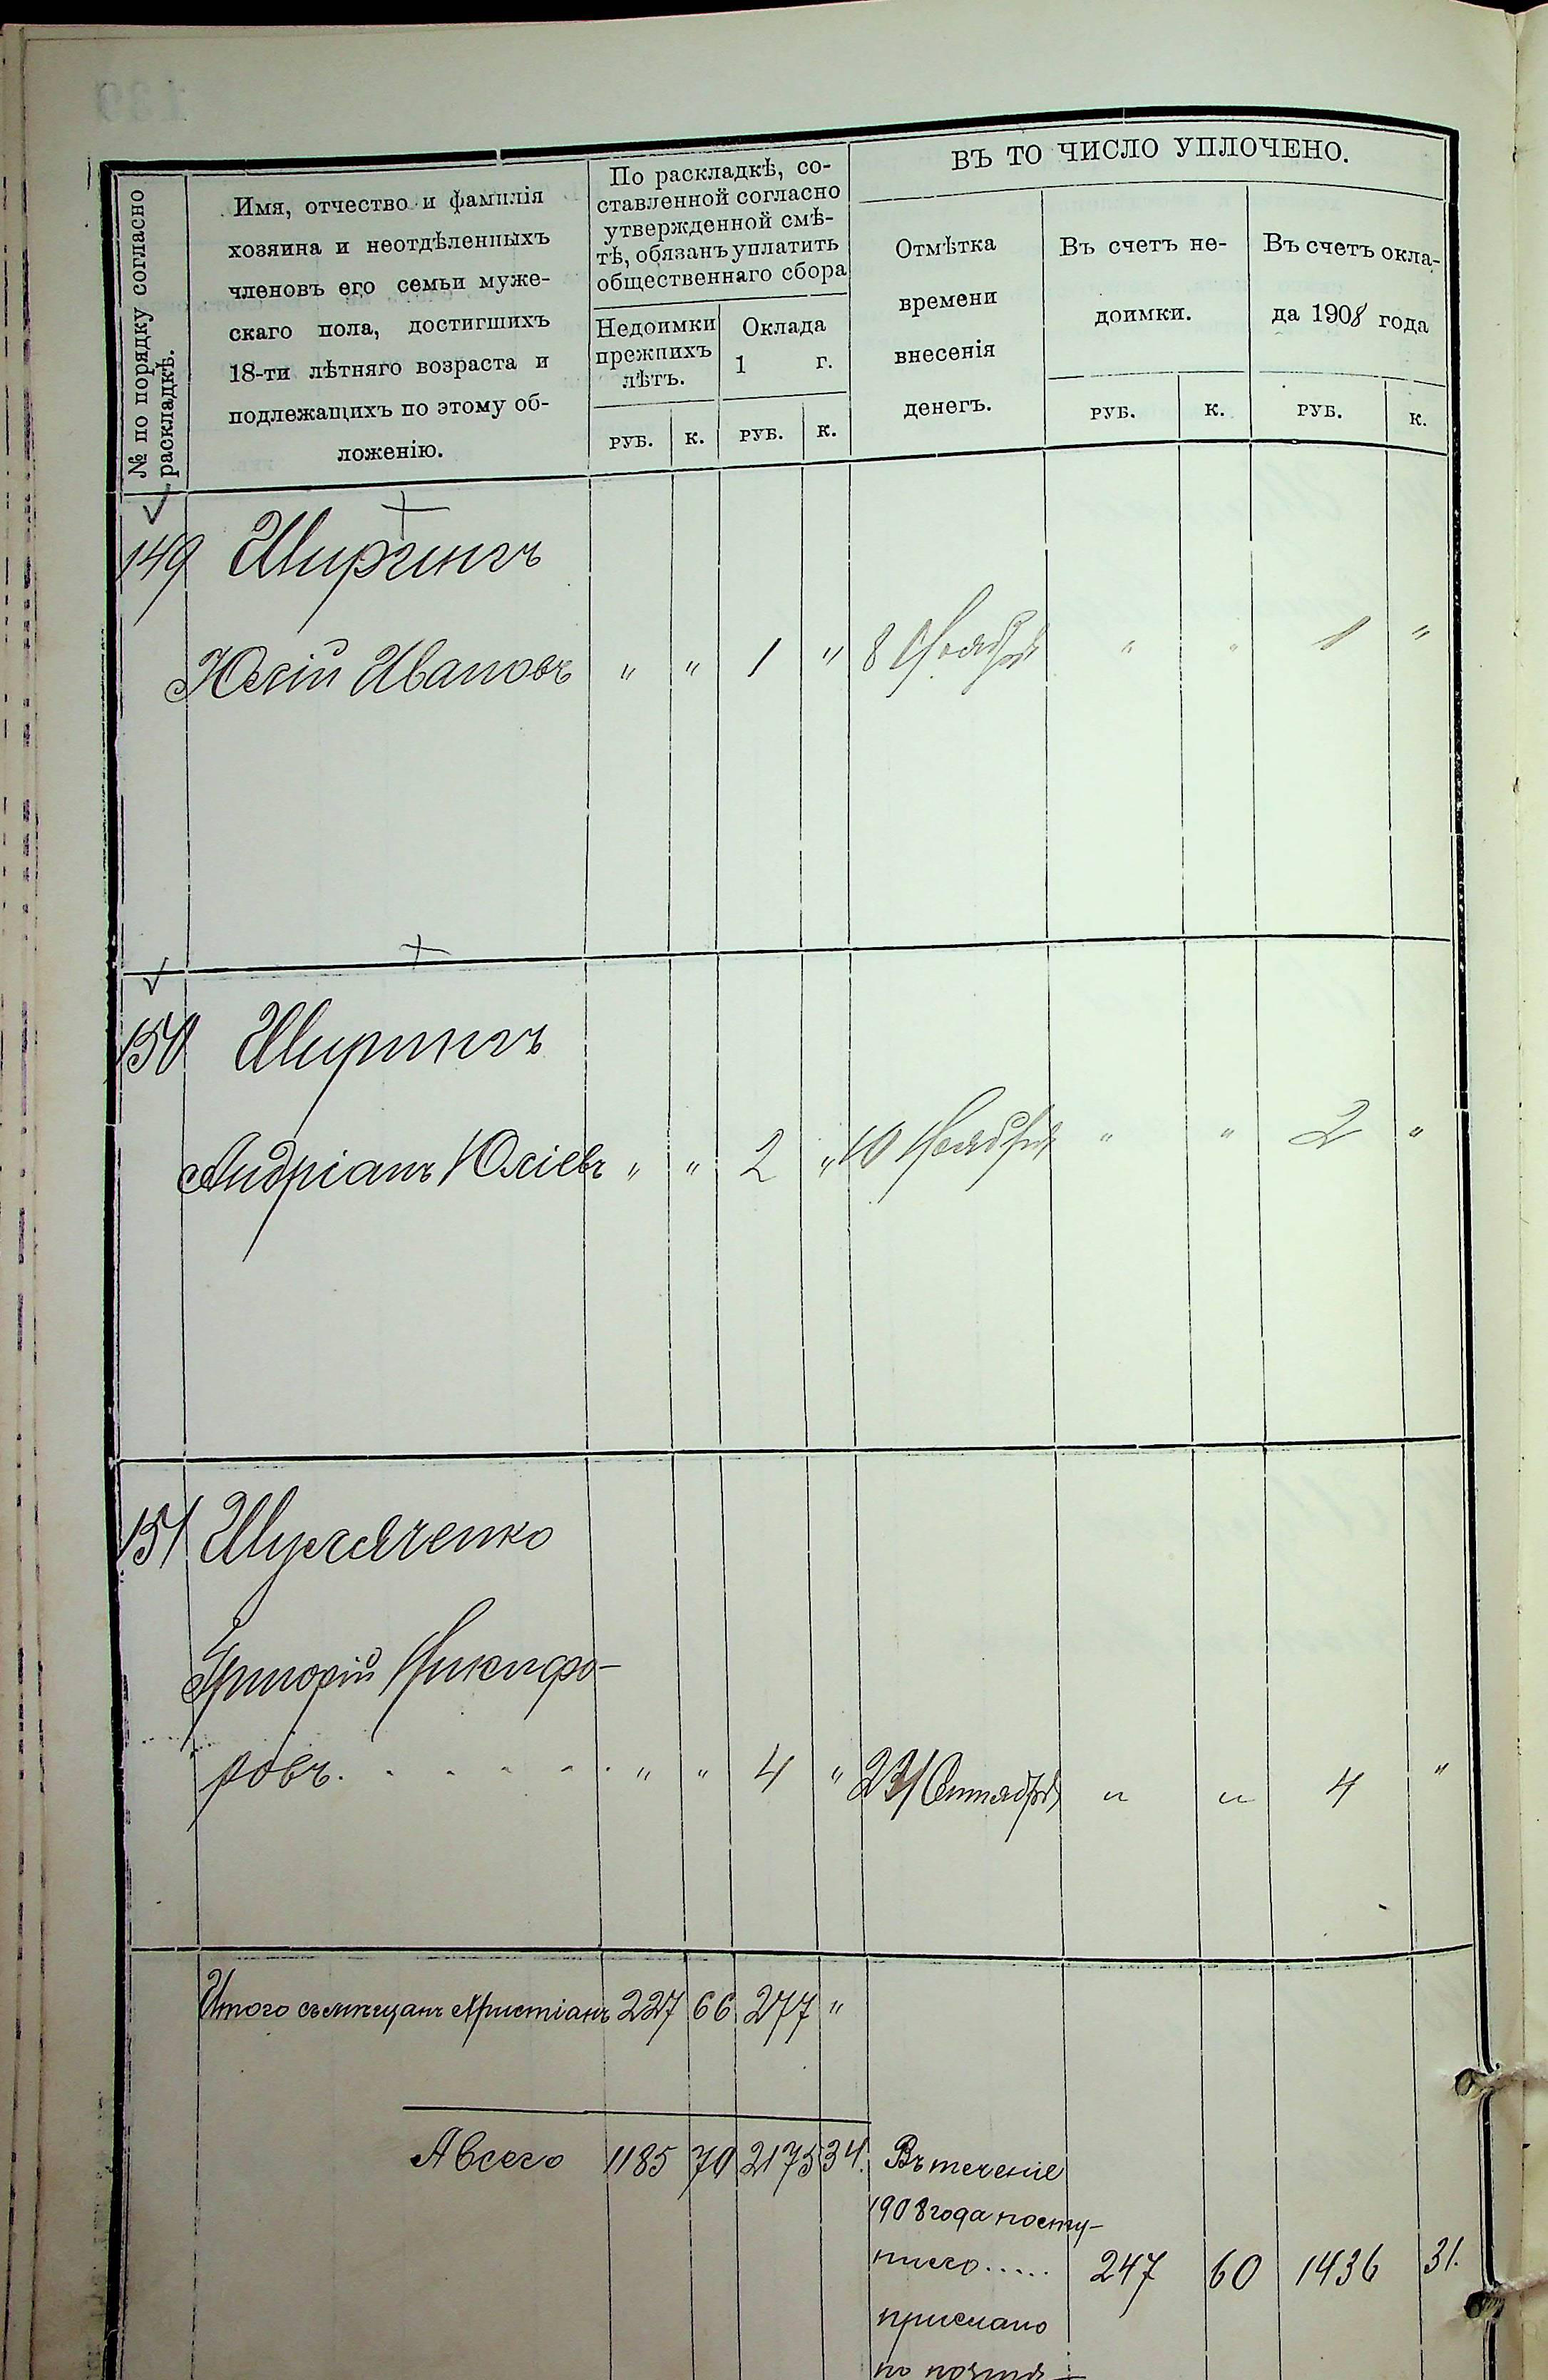 № по порядку согласно
раскладкѣ.
Имя, отчество и фамилія
хозяина и неотдѣленныхъ
членовъ его семьи муже-
скаго пола, достигшихъ
18-ти лѣтняго возраста и
подлежащихъ по этому об-
ложенію.
По раскладкѣ, со-
ставленной согласно
утвержденной смѣ-
тѣ, обязанъ уплатить
общественнаго сбора
Недоимки
прежнихъ
лѣтъ.
Оклада
1 г.
РУБ. К. РУБ. К.
ВЪ ТО ЧИСЛО УПЛОЧЕНО.
Отмѣтка
времени
внесенія
денегъ.
Въ счетъ не-
доимки.
Въ счетъ окла-
да 1908 года
РУБ. К. РУБ. К.
149
Юлій Ивановъ " " 1 " 8 Ноября " " 1 "
150 Ширингъ
Андріанъ Юліевъ " " 2 " 10 Ноября " " 2 "
151
Григорій Никифо-
ровъ. . . . . . . " " 4 " " " 4 "
Итого съ мѣщанъ христіанъ 227 66 277 "
А всего 1185 70 2175 34. Въ теченіе
1908 года посту-
пило..... 247 60 1436 31.
прислано
по почтѣ